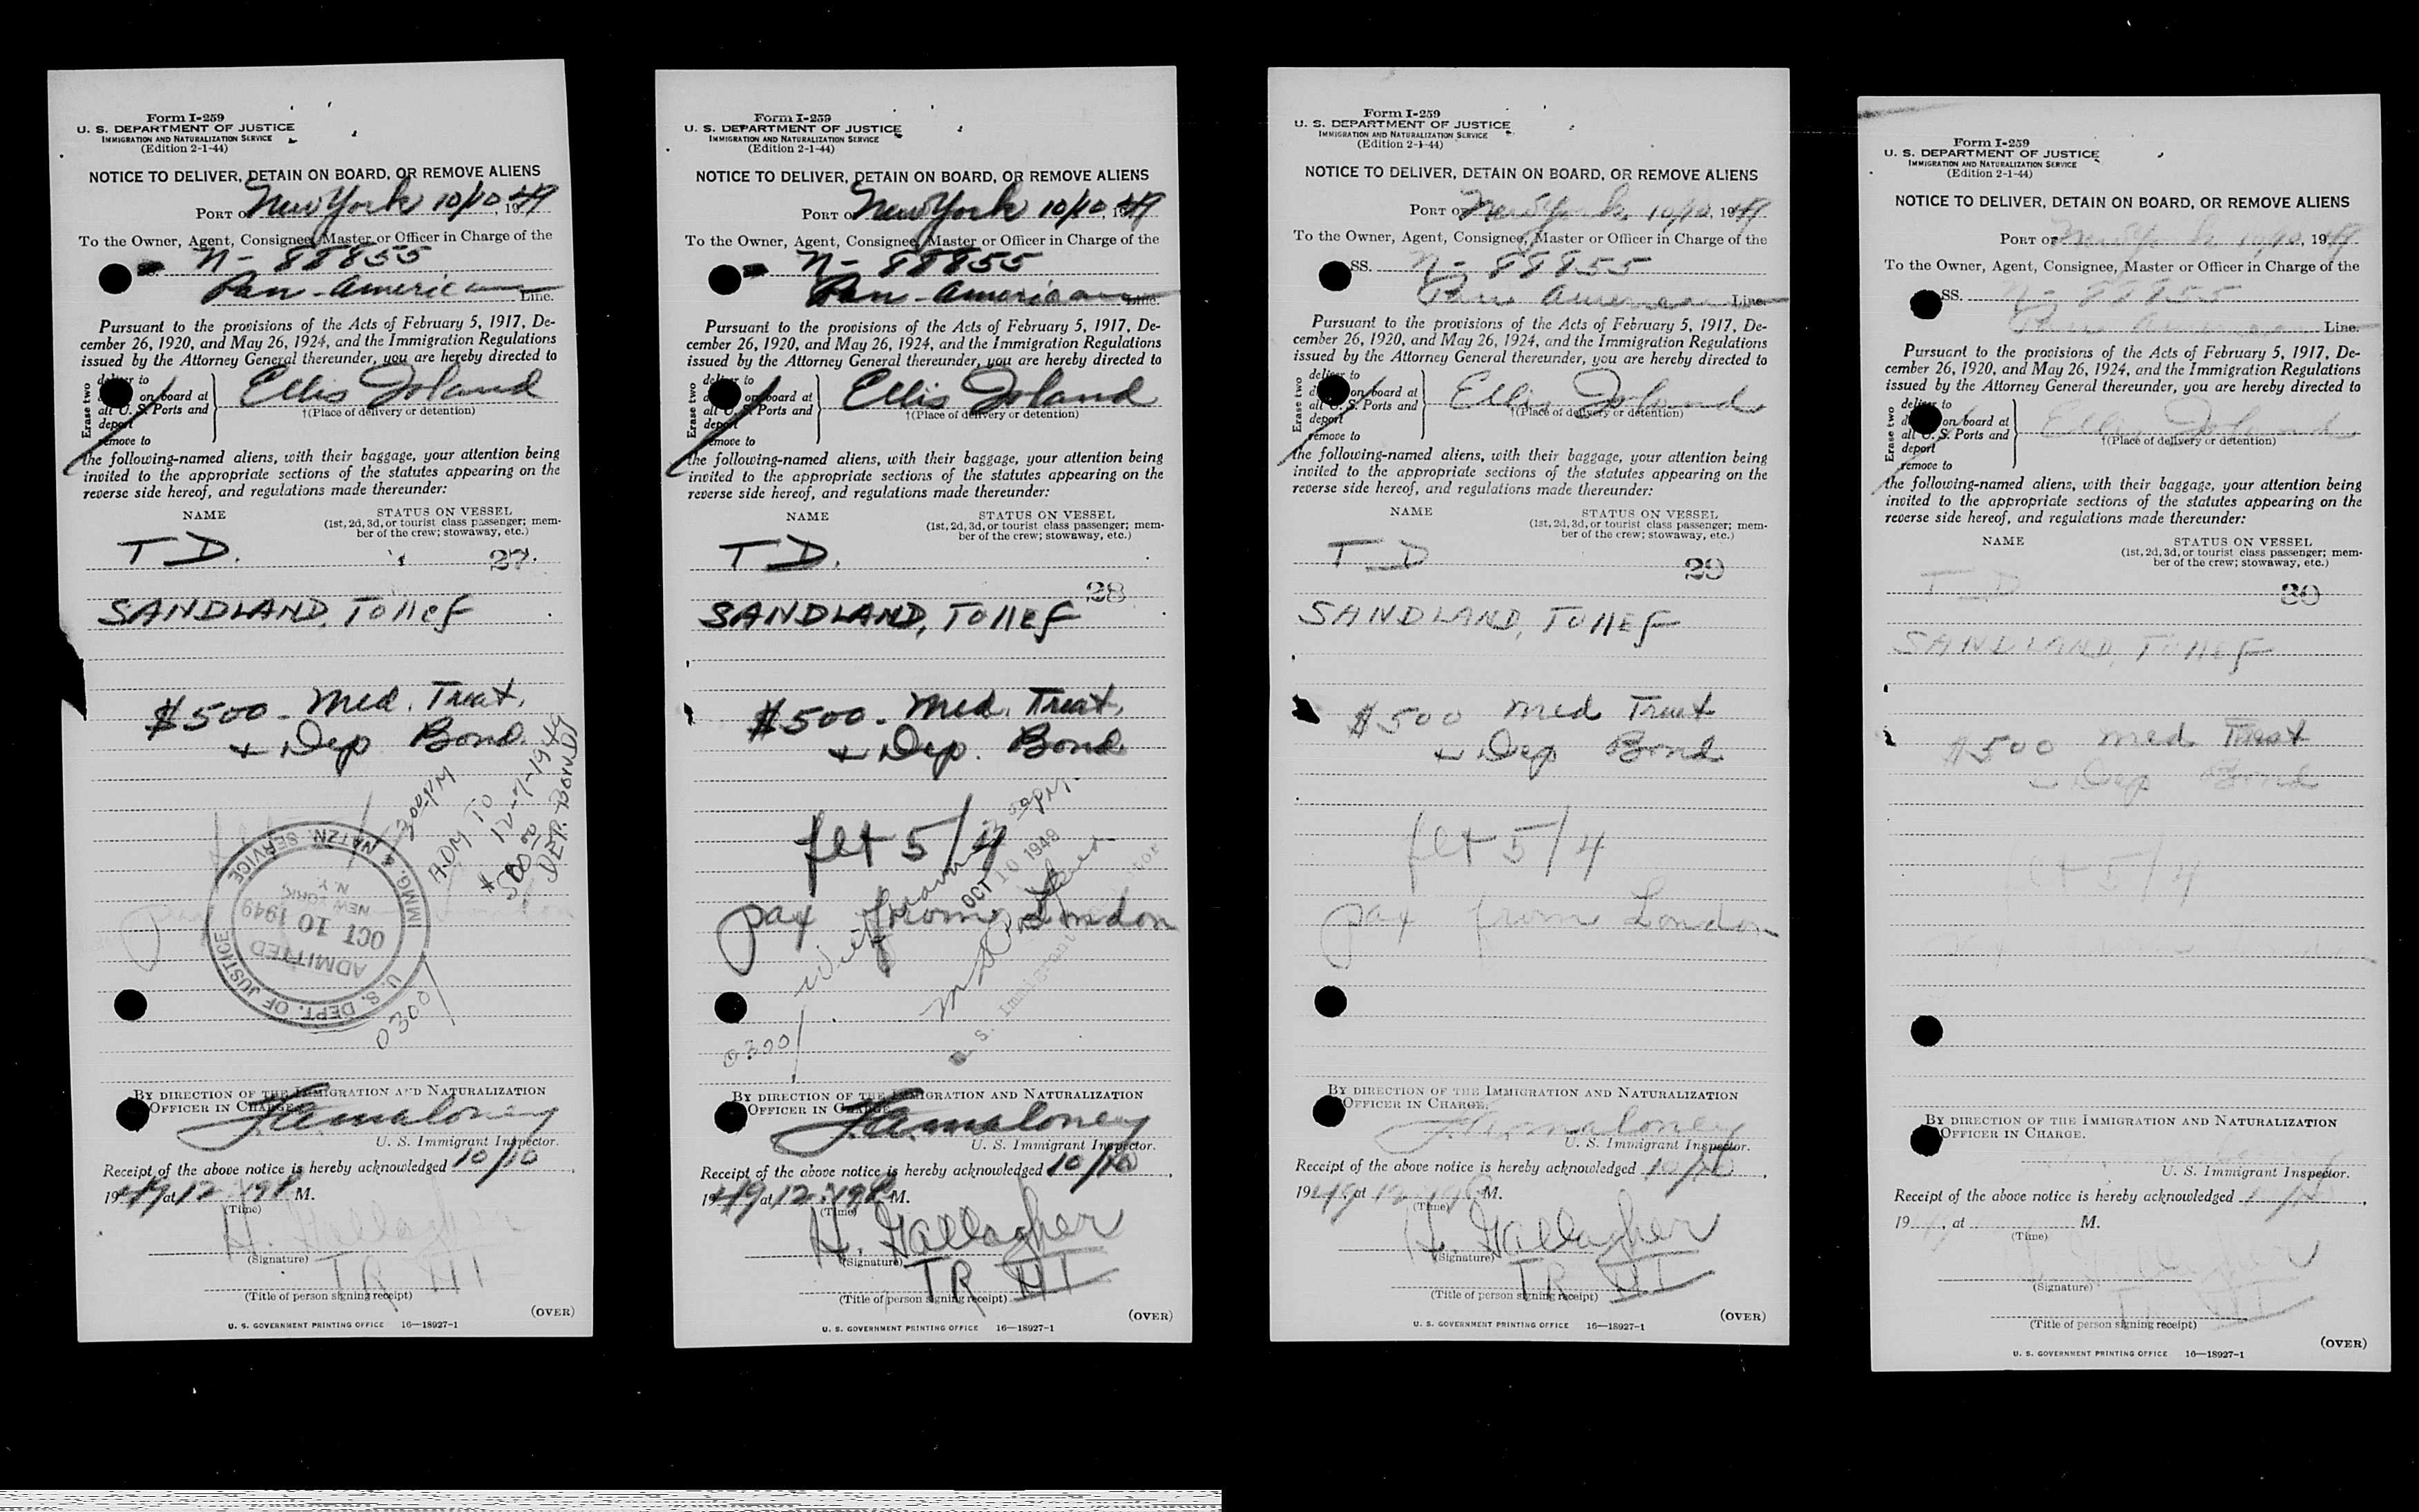 Form I-259
U. S. DEPARTMENT OF JUSTICE
IMMIGRATION AND NATURALIZATION SERVICE
(Edition 2-1-44)
NOTICE TO DELIVER, DETAIN ON BOARD, OR REMOVE ALIENS
PORT OF New York 10/10, 1949
To the Owner, Agent, Consignee, Master or Officer in Charge of the
N- 88855
Pan-American Line.
Pursuant to the provisions of the Acts of February 5, 1917, De-
cember 26, 1920, and May 26, 1924, and the Immigration Regulations
issued by the Attorney General thereunder, you are hereby directed to
Erase two
deliver to
on board at
all U. S. Ports and
deport
remove to
Ellis Island
†(Place of delivery or detention)
the following-named aliens, with their baggage, your attention being
invited to the appropriate sections of the statutes appearing on the
reverse side hereof, and regulations made thereunder:
NAME STATUS ON VESSEL
(1st, 2d, 3d, or tourist class passenger; mem-
ber of the crew; stowaway, etc.)
T D. 27
SANDLAND, TOllEf
$500- Med. Treat.
+ Dep Bond
300 PM
ADM TO
12-9-1949
$500.00
DEP. BOND
U. S. DEPT. OF JUSTICE
IMMG. & NATZN. SERVICE
ADMITTED
OCT 10 1949
NEW YORK
N. Y.
0300/
BY DIRECTION OF THE IMMIGRATION AND NATURALIZATION
OFFICER IN CHARGE.
F.A. Maloney
U. S. Immigrant Inspector.
Receipt of the above notice is hereby acknowledged 10/10,
1949 at 12 M.
(Time)
H. Gallagher
(Signature)
TR
(Title of person signing receipt)
(OVER)
U. S. GOVERNMENT PRINTING OFFICE 16—18927-1
Form I-259
U. S. DEPARTMENT OF JUSTICE
IMMIGRATION AND NATURALIZATION SERVICE
(Edition 2-1-44)
NOTICE TO DELIVER, DETAIN ON BOARD, OR REMOVE ALIENS
PORT OF New York 10/10, 1949
To the Owner, Agent, Consignee, Master or Officer in Charge of the
N- 88855
Pan-American Line.
Pursuant to the provisions of the Acts of February 5, 1917, De-
cember 26, 1920, and May 26, 1924, and the Immigration Regulations
issued by the Attorney General thereunder, you are hereby directed to
Erase two
deliver to
on board at
all U. S. Ports and
deport
remove to
Ellis Island
†(Place of delivery or detention)
the following-named aliens, with their baggage, your attention being
invited to the appropriate sections of the statutes appearing on the
reverse side hereof, and regulations made thereunder:
NAME STATUS ON VESSEL
(1st, 2d, 3d, or tourist class passenger; mem-
ber of the crew; stowaway, etc.)
T D. 28
SANDLAND, TOllEf
$500- Med. Treat.
+ Dep. Bond
flt 5/4
OCT 10 1949
pax from London
U. S. Immigrant Inspector
0300/
BY DIRECTION OF THE IMMIGRATION AND NATURALIZATION
OFFICER IN CHARGE.
F.A. Maloney
U. S. Immigrant Inspector.
Receipt of the above notice is hereby acknowledged 10/10,
1949 at 12 M.
(Time)
H. Gallagher
(Signature)
TR
(Title of person signing receipt)
(OVER)
U. S. GOVERNMENT PRINTING OFFICE 16—18927-1
Form I-259
U. S. DEPARTMENT OF JUSTICE
IMMIGRATION AND NATURALIZATION SERVICE
(Edition 2-1-44)
NOTICE TO DELIVER, DETAIN ON BOARD, OR REMOVE ALIENS
PORT OF New York 10/10, 1949
To the Owner, Agent, Consignee, Master or Officer in Charge of the
SS. N- 88855
Pan American Line.
Pursuant to the provisions of the Acts of February 5, 1917, De-
cember 26, 1920, and May 26, 1924, and the Immigration Regulations
issued by the Attorney General thereunder, you are hereby directed to
Erase two
deliver to
on board at
all U. S. Ports and
deport
remove to
Ellis Island
†(Place of delivery or detention)
the following-named aliens, with their baggage, your attention being
invited to the appropriate sections of the statutes appearing on the
reverse side hereof, and regulations made thereunder:
NAME STATUS ON VESSEL
(1st, 2d, 3d, or tourist class passenger; mem-
ber of the crew; stowaway, etc.)
T D 29
SANDLAND, TOllEf
$500 Med Treat
+ Dep Bond
flt 5/4
pax from London
BY DIRECTION OF THE IMMIGRATION AND NATURALIZATION
OFFICER IN CHARGE.
F.A. Maloney
U. S. Immigrant Inspector.
Receipt of the above notice is hereby acknowledged 10/10,
1949 at 12 M.
(Time)
H. Gallagher
(Signature)
TR
(Title of person signing receipt)
(OVER)
U. S. GOVERNMENT PRINTING OFFICE 16—18927-1
Form I-259
U. S. DEPARTMENT OF JUSTICE
IMMIGRATION AND NATURALIZATION SERVICE
(Edition 2-1-44)
NOTICE TO DELIVER, DETAIN ON BOARD, OR REMOVE ALIENS
PORT OF New York 10/10, 1949
To the Owner, Agent, Consignee, Master or Officer in Charge of the
SS. N- 88855
Pan American Line.
Pursuant to the provisions of the Acts of February 5, 1917, De-
cember 26, 1920, and May 26, 1924, and the Immigration Regulations
issued by the Attorney General thereunder, you are hereby directed to
Erase two
deliver to
on board at
all U. S. Ports and
deport
remove to
Ellis Island
†(Place of delivery or detention)
the following-named aliens, with their baggage, your attention being
invited to the appropriate sections of the statutes appearing on the
reverse side hereof, and regulations made thereunder:
NAME STATUS ON VESSEL
(1st, 2d, 3d, or tourist class passenger; mem-
ber of the crew; stowaway, etc.)
T D 30
SANDLAND, TOllEf
$500 Med Treat
+ Dep Bond
flt 5/4
BY DIRECTION OF THE IMMIGRATION AND NATURALIZATION
OFFICER IN CHARGE.
U. S. Immigrant Inspector.
Receipt of the above notice is hereby acknowledged
19 , at M.
(Time)
(Signature)
(Title of person signing receipt)
(OVER)
U. S. GOVERNMENT PRINTING OFFICE 16—18927-1